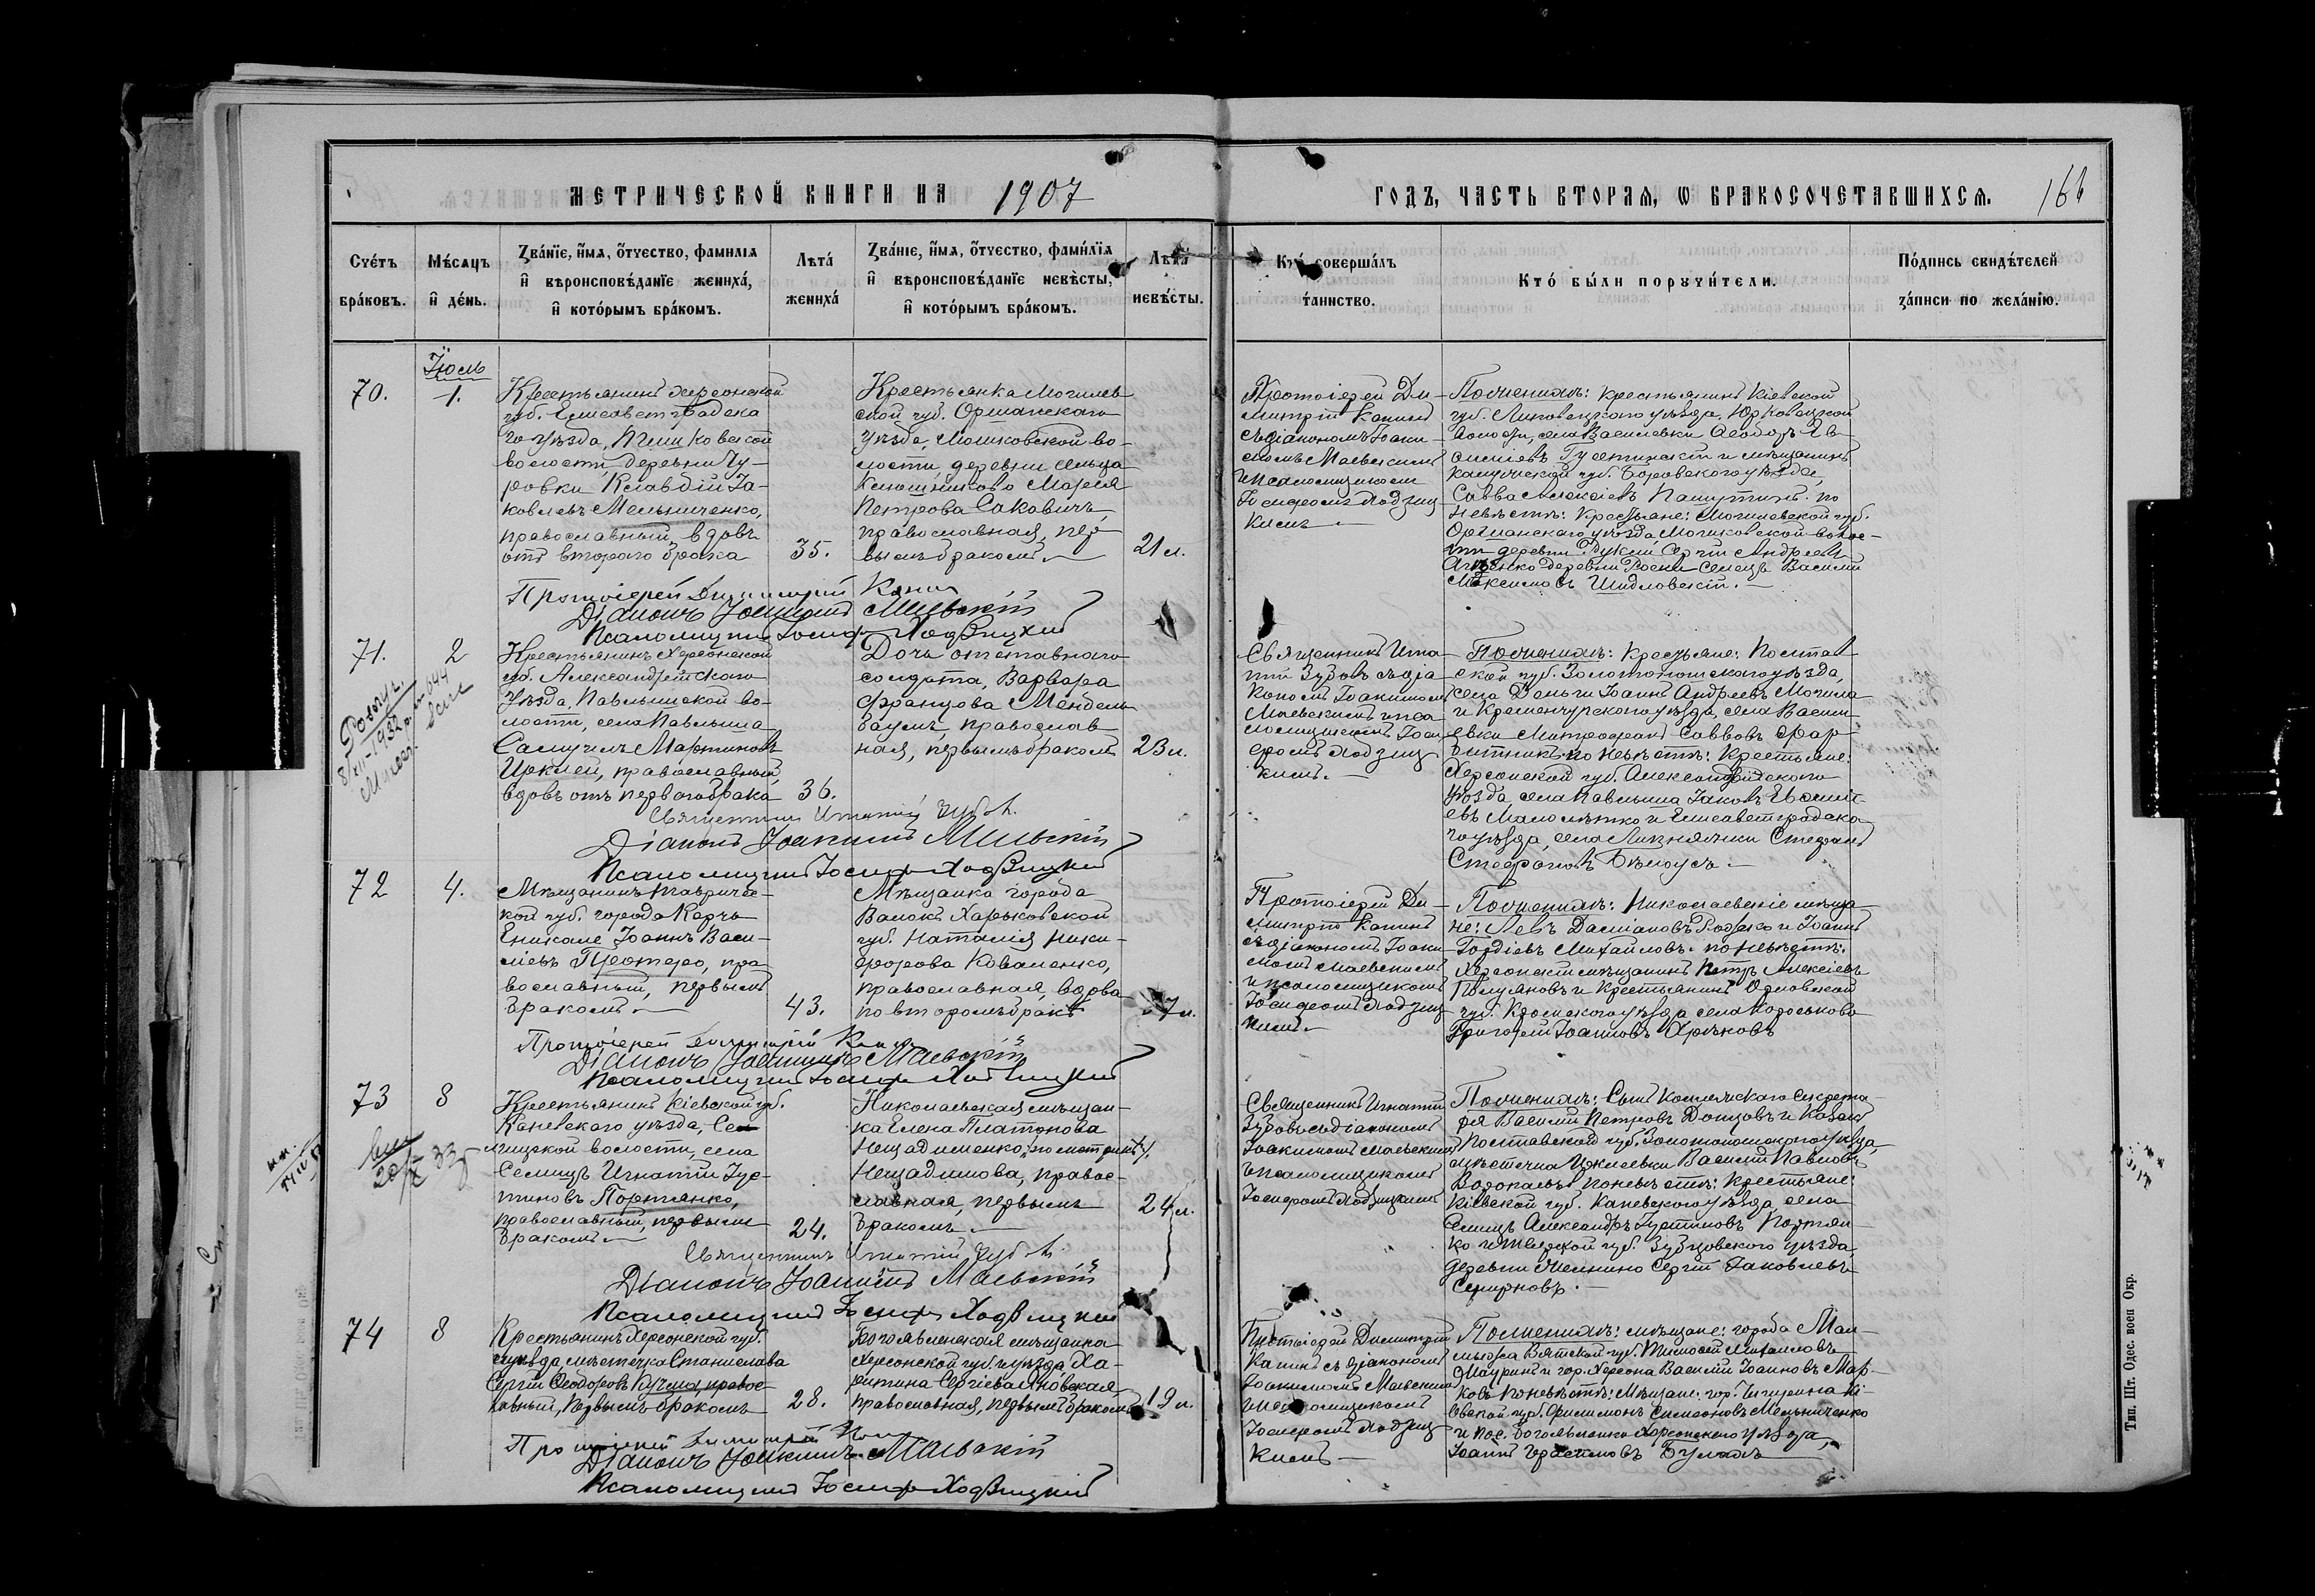 МЕТРИЧЕСКОЙ КНИГИ НА 1907
ГОДЪ, ЧАСТЬ ВТОРАЯ, Ѡ БРАКОСОЧЕТАВШИХСЯ. 166
Счетъ браковъ.
Мѣсяцъ и день.
Званіе, имя, отчество, фамилія
и вѣроисповѣданіе жениха,
и которымъ бракомъ.
Лѣта
жениха
Званіе, имя, отчество, фамилія
и вѣроисповѣданіе невѣсты,
и которымъ бракомъ.
Лѣта
невѣсты.
Кто совершалъ
таинство.
Кто были поручители.
Подпись свидѣтелей
записи по желанію.
Іюль
70.
1.
Крестьянинъ Херсонской
губ. Елисаветградска
го уѣзда,
волости деревни Гу-
ровки Клавдій Іа-
ковлевъ Мельниченко,
православный, вдовъ
отъ второго брака
35.
Крестьянка Могилев
ской губ. Оршанскаго
уѣзда, Мошковской во-
лости, деревни сельца
Марія
Петрова Саковичъ,
православная, пер
вымъ бракомъ.
21 л.
Протоіерей Ди-
митрій Канинъ
съ діакономъ Іоаки-
момъ Маевскимъ
и псаломщикомъ
Іосифомъ Ходзиц
кимъ.
По женихѣ: крестьянинъ Кіевской
губ. Липовецкаго уѣзда, Юрковецкой
волости, села Василевки Ѳеодоръ Ев
и мѣщанинъ
Калужской губ. Боровскаго уѣзда,
Савва Алексіевъ Пашутинъ. по
невѣстѣ: Крестьяне: Могилевской губ.
Оршанскаго уѣзда, Мошковской волос-
ти деревни Сергій Андреевъ
деревни Василій
Максимовъ Шидловскій.
Протоіерей Димитрій Канинъ
Діаконъ Іоакимъ Маевскій
Псаломщикъ Іосифъ Ходзицкій
71.
2
Крестьянинъ Херсонской
губ. Александрійскаго
уѣзда, Павлышской во-
лости, села Павлыша
Самуилъ Мартиновъ
Ирклей, православный,
вдовъ отъ перваго брака
36.
Дочь отставнаго
солдата, Варвара
Францова Мендель
баумъ, православ
ная, первымъ бракомъ
23 л.
Священникъ Игна
тій Зубовъ съ діа
кономъ Іоакимомъ
Маевскимъ и пса
ломщикомъ Іоси
фомъ Ходзиц
кимъ.
По женихѣ: крестьяне: Полтав
ской губ. Золотоношскаго уѣзда,
села Деньги Іоаннъ Андреевъ Могила
и Кременчугскаго уѣзда, села Васил
евки Митрофанъ Саввовъ
по невѣстѣ: Крестьяне:
Херсонской губ. Александрійскаго
уѣзда, села Павлыша Іаковъ
евъ Малолѣтко и Елисаветградска
го уѣзда, села Стефанъ
Стефановъ Бѣлоусъ.
Священникъ Игнатій Зубовъ.
Діаконъ Іоакимъ Маевскій
Псаломщикъ Іосифъ Ходзицкій
72
4.
Мѣщанинъ Тавричес-
кой губ. города Керчь
Еникале Іоаннъ Васи-
ліевъ пра
вославный, первымъ
бракомъ.
43.
Мѣщанка города
Валокъ Харьковской
губ. Наталія Ники-
форова Коваленко,
православная, вдова
по второмъ бракѣ
Протоіерей Ди-
митрій Канинъ
съ діакономъ Іоаки
момъ Маевскимъ
и псаломщикомъ
Іосифомъ Ходзиц
кимъ.
По женихѣ: Николаевскіе мѣща
не: Левъ Даміановъ и Іоаннъ
Гордіевъ Михайловъ. по невѣстѣ:
Херсонскій мѣщанинъ Петръ Алексіевъ
и крестьянинъ Орловской
губ. Кромскаго уѣзда села Короськово
Григорій Іоанновъ
Протоіерей Димитрій Канинъ
Діаконъ Іоакимъ Маевскій
Псаломщикъ Іосифъ Ходзицкій
73
8
Крестьянинъ Кіевской губ.
Каневскаго уѣзда, Се
мицской волости, села
Селищъ Игнатій Іус-
тиновъ Портянко,
православный, первымъ
бракомъ
24.
Николаевская мѣщан-
ка Елена Платонова
Нещадименко, по метрикѣ
Нещадимова, правос-
лавная, первымъ
бракомъ.
24 л.
Священникъ Игнатій
Зубовъ съ діакономъ
Іоакимомъ Маевскимъ
и псаломщикомъ
Іосифомъ Ходзицкимъ
По женихѣ: Сынъ Коллежскаго Секрета-
ря Василій Петровъ Донцовъ и Казакъ
Полтавской губ. Золотоношскаго уѣзда,
мѣстечка Ирклеевки Василій Павловъ
по невѣстѣ: крестьяне:
Кіевской губ. Каневскаго уѣзда, села
Селищъ Александръ Іустиновъ Портян-
ко и Тверской губ. Зубцовскаго уѣзда,
деревни Сергій Іаковлевъ
Смирновъ.
Священникъ Игнатій Зубовъ.
Діаконъ Іоакимъ Маевскій
Псаломщикъ Іосифъ Ходзицкій
74
8
Крестьянинъ Херсонской губ.
и уѣзда, мѣстечка Станислава
Сергій Ѳеодоровъ Кучма, правос-
лавный, первымъ бракомъ
28.
Богоявленская мѣщанка
Херсонской губ. и уѣзда, Ха-
ритина Сергіева Яновская,
православная, первымъ бракомъ
19 л.
Протоіерей Димитрій
Канинъ съ діакономъ
Іоакимомъ Маевскимъ
и псаломщикомъ
Іосифомъ Ходзиц
кимъ
По женихѣ: мѣщане: города Мал-
мыжа Вятской губ. Тимоѳей Михайловъ
и гор. Херсона Василій Іоанновъ Мар-
ковъ. По невѣстѣ: мѣщане: гор. Чигирина Кі-
евской губ. Филимонъ Симеоновъ Мельниченко
и пос. Богоявленска Херсонскаго уѣзда,
Іоаннъ Герасимовъ
Протоіерей Димитрій
Діаконъ Іоакимъ Маевскій
Псаломщикъ Іосифъ Ходзицкій
Тип. Шт. Одес. воен Окр.